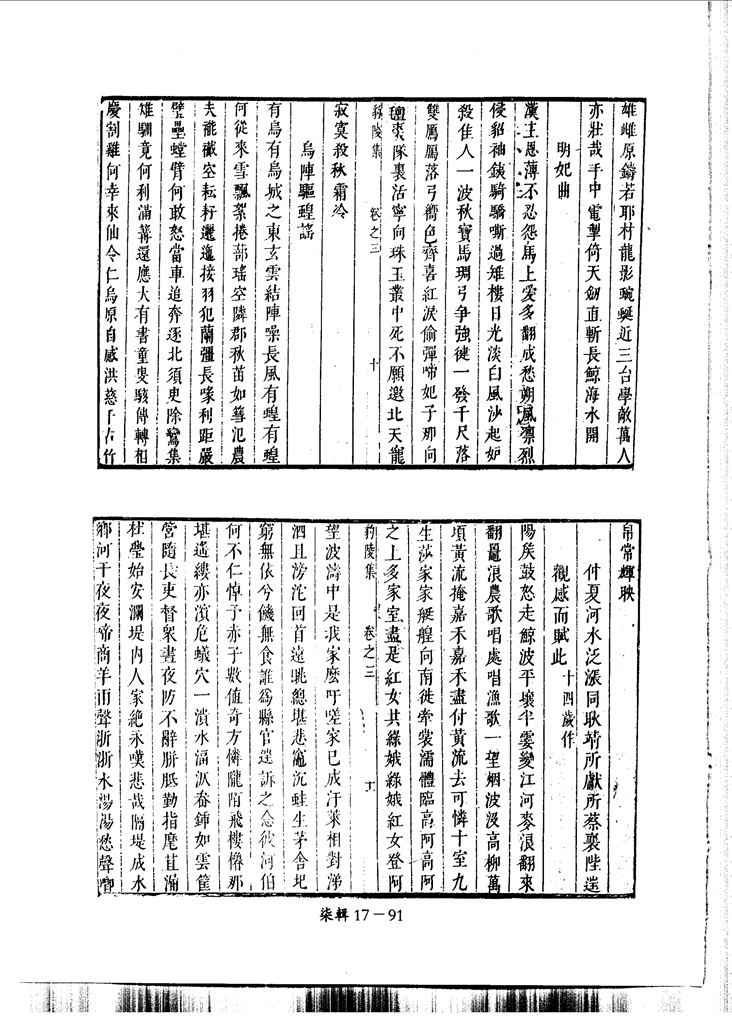 雄雌原鑄若耶村龍影蜿蜒近三台學敵萬人
亦壯哉手中電掣倚天劒直斬長鯨海水開
明妃曲
漢主恩薄不忍怨馬上愛多翻成愁朔風凛烈
侵貂袖鐵騎驕嘶過雉樓日光淡白風沙起妒
殺佳人一波秋寶馬琱弓争強健一發千尺落
雙鴈鴈落弓嚮色齊喜紅淚偷彈啼妃子那向
氊裘隊裏活寧向珠玉叢中死不願邀北天寵
卷之三
十
寂寞殺秋霜冷
烏陣驅蝗謠
有烏有烏城之東玄雲結陣噪長風有蝗有蝗
何從來雪飄絮捲蔀瑤空隣郡秋苗如篲氾農
夫龍截空耘耔邐迤接羽犯蘭彊長喙利距嚴
壁壘螳臂何敢怒當車追奔逐北須更除鶩集
雉馴竟何利滿篝還應大有書童叟駭傳轉相
慶割雞何幸來仙令仁烏原自感洪慈千古竹
帛常輝映
仲夏河水泛漲同耿靖所獻所蔡襄陛遑
觀感而賦此 十四歲作
陽侯鼓怒走鯨波平壤半霎變江河麥浪翻來
翻鼉浪農歌唱處唱漁歌一望烟波沒高柳萬
頃黃流掩嘉禾嘉禾盡付黃流去可憐十室九
生莎家家艇艎向南徙牽裳濡體臨高阿高阿
之上多家室盡是紅女共綠娥綠娥紅女登阿
卷之三
望波濤中是我家麽吁嗟家已成汙萊相對涕
泗且滂沱回首遠眺總堪悲竈沉蛙生茅舍圯
窮無依兮饑無食誰爲縣官遑訴之念彼河伯
何不仁悼予亦子數值奇方憐隴陌飛樓櫓那
堪遙纓亦濵危蟻穴一潰水湢汃畚鍤如雲筐
筥隨長吏督衆晝夜防不辭胼胝勤指麾苴漏
杜璺始安瀾堤內人家絶永嘆悲哉隔堤成水
鄉河干夜夜啼商羊雨聲淅淅水湯湯愁聲喈
柒輯 17－91